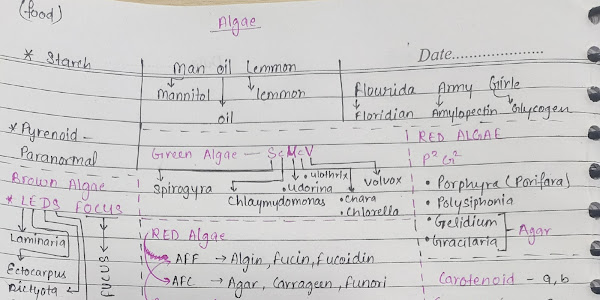 (food)
Algae
Date
* Starch
Man oil Lemmon
Mannitol
lemmon
oil
Flourida Army Girle
Floridian Amylopectin Glycogen
* Pyrenoid -
Paranormal
Green Algae - ScMcV
Spirogyra
Chlaymydomonas
• ulothrix
• udorina
• Chara
• Chlorella
volvox
RED ALGAE
P² G²
• Porphyra (Porifara)
• Polysiphonia
• Gelidium
• Gracilaria
Agar
Carotenoid - a, b
Brown Algae
* LEDS FOCUS
Laminaria
Ectocarpus
Dictyota
FUCUS
RED Algae
AFF → Algin, Fucin, Fucoidin
AFC → Agar, Carrageen, Funori